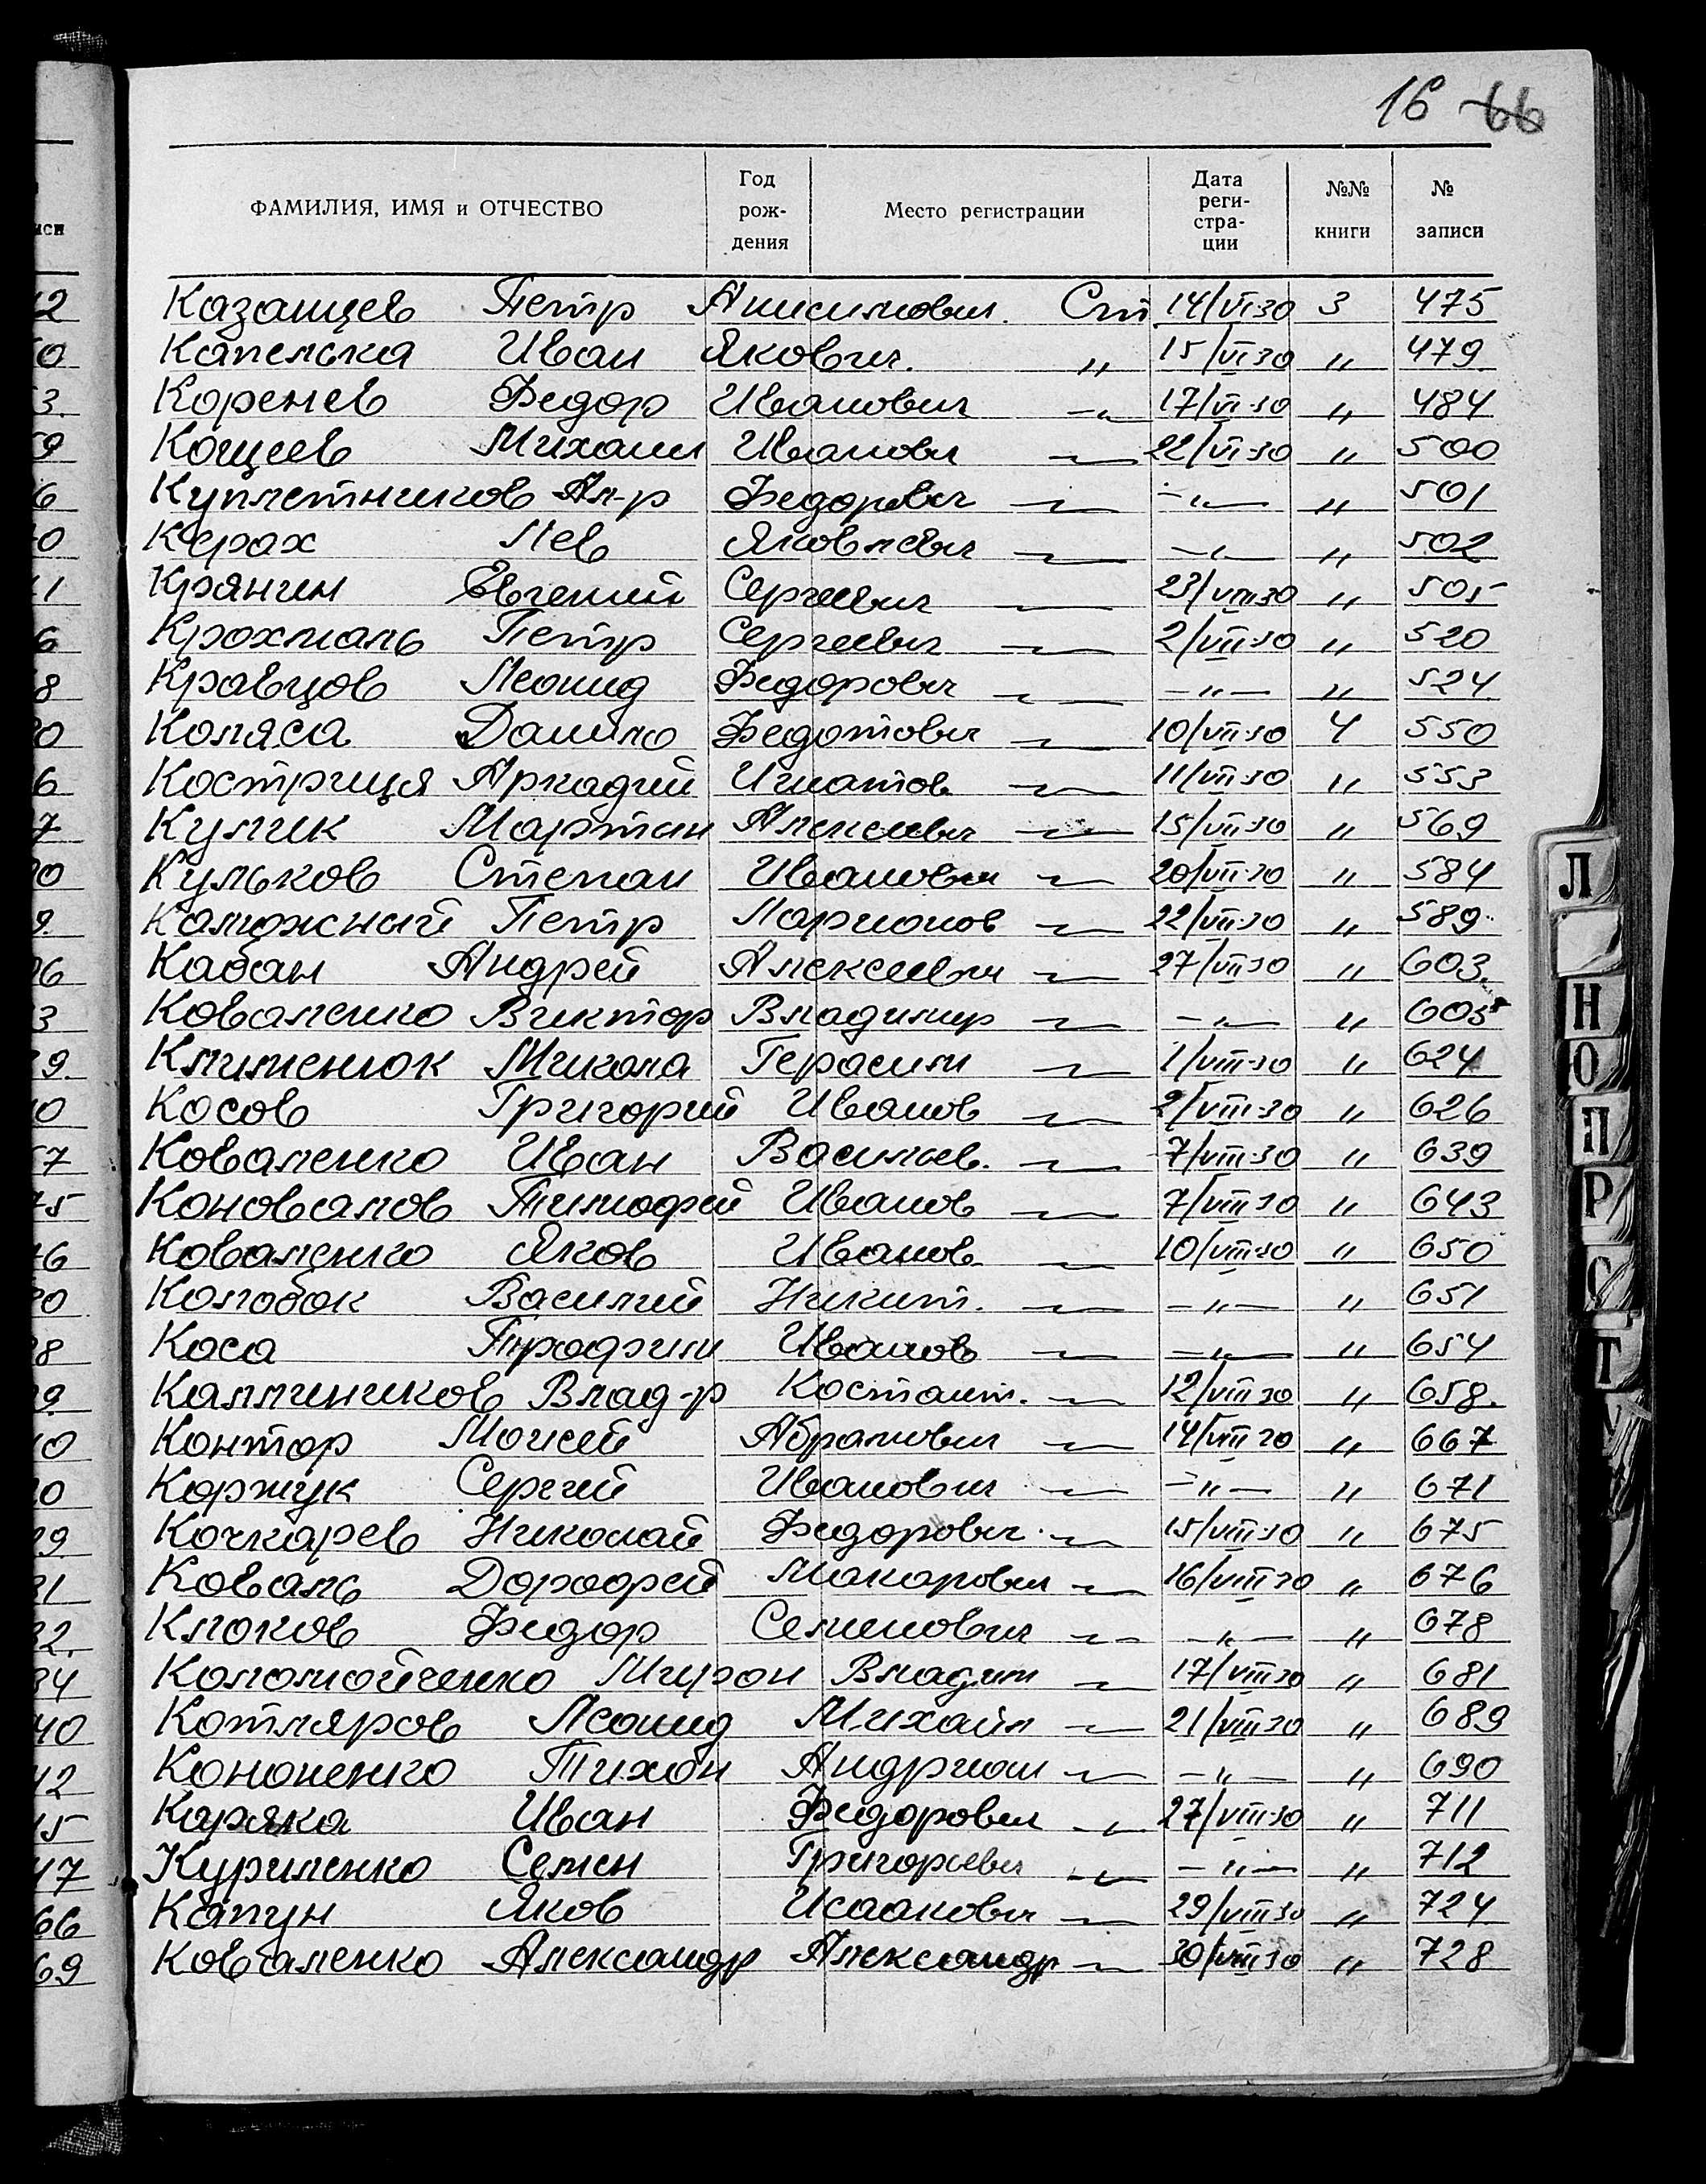 16 66
ФАМИЛИЯ, ИМЯ и ОТЧЕСТВО Год рож- дения Место регистрации Дата реги- стра- ции №№ книги № записи
Казанцев Петр Анисимович. Ст 14/VI-30 3 475
Капелька Иван Якович. " 15/VI-30 " 479
Коренев Федор Иванович —"— 17/VI-30 " 484
Кощеев Михаил Иванович —"— 22/VI-30 " 500
Куплетников Ал-р Федорович —"— —"— " 501
Керах Лев Яковлевич —"— —"— " 502
Крянин Евгений Сергеевич —"— 23/VIII30 " 505
Крохмаль Петр Сергеевич —"— 2/VII-30 " 520
Кравцов Леонид Федорович —"— —"— " 524
Коляса Данило Федотович —"— 10/VII-30 4 550
Костриця Аркадий Игнатов —"— 11/VII-30 " 553
Кулик Мартин Алексеевич —"— 15/VII-30 " 569
Кульков Степан Иванович —"— 20/VII-30 " 584
Калюжный Петр Ларионов —"— 22/VII-30 " 589
Кабан Андрей Алексеевич —"— 27/VII-30 " 603
Коваленко Виктор Владимир —"— —"— " 605
Клименюк Микола Герасим —"— 1/VIII-30 " 624
Косов Григорий Иванов —"— 2/VIII-30 " 626
Коваленко Иван Васильев. —"— 7/VIII-30 " 639
Коновалов Тимофей Иванов —"— 7/VIII-30 " 643
Коваленко Яков Иванов —"— 10/VIII-30 " 650
Колобок Василий Никит. —"— —"— " 651
Коса Трофим Иванов —"— —"— " 654
Калиников Влад-р Костант. —"— 12/VIII 30 " 658.
Контор Моисей Абрамович —"— 14/VIII 30 " 667
Коржук Сергей Иванович —"— —"— " 671
Кочкарев Николай Федорович —"— 15/VIII-30 " 675
Коваль Дорофей Макарович —"— 16/VIII 30 " 676
Клюков Федор Семенович —"— —"— " 678
Коломойченко Мирон Владим —"— 17/VIII 30 " 681
Котляров Леонид Михайл —"— 21/VIII-30 " 689
Кононенко Тихон Андриан —"— —"— " 690
Каряка Иван Федорович —"— 27/VIII-30 " 711
Куриленко Семен Григорьевич —"— —"— " 712
Капун Яков Исаакович —"— 29/VIII 30 " 724
Коваленко Александр Александр —"— 30/VIII 30 " 728
Л
Н
О
П
Р
С
Т
У